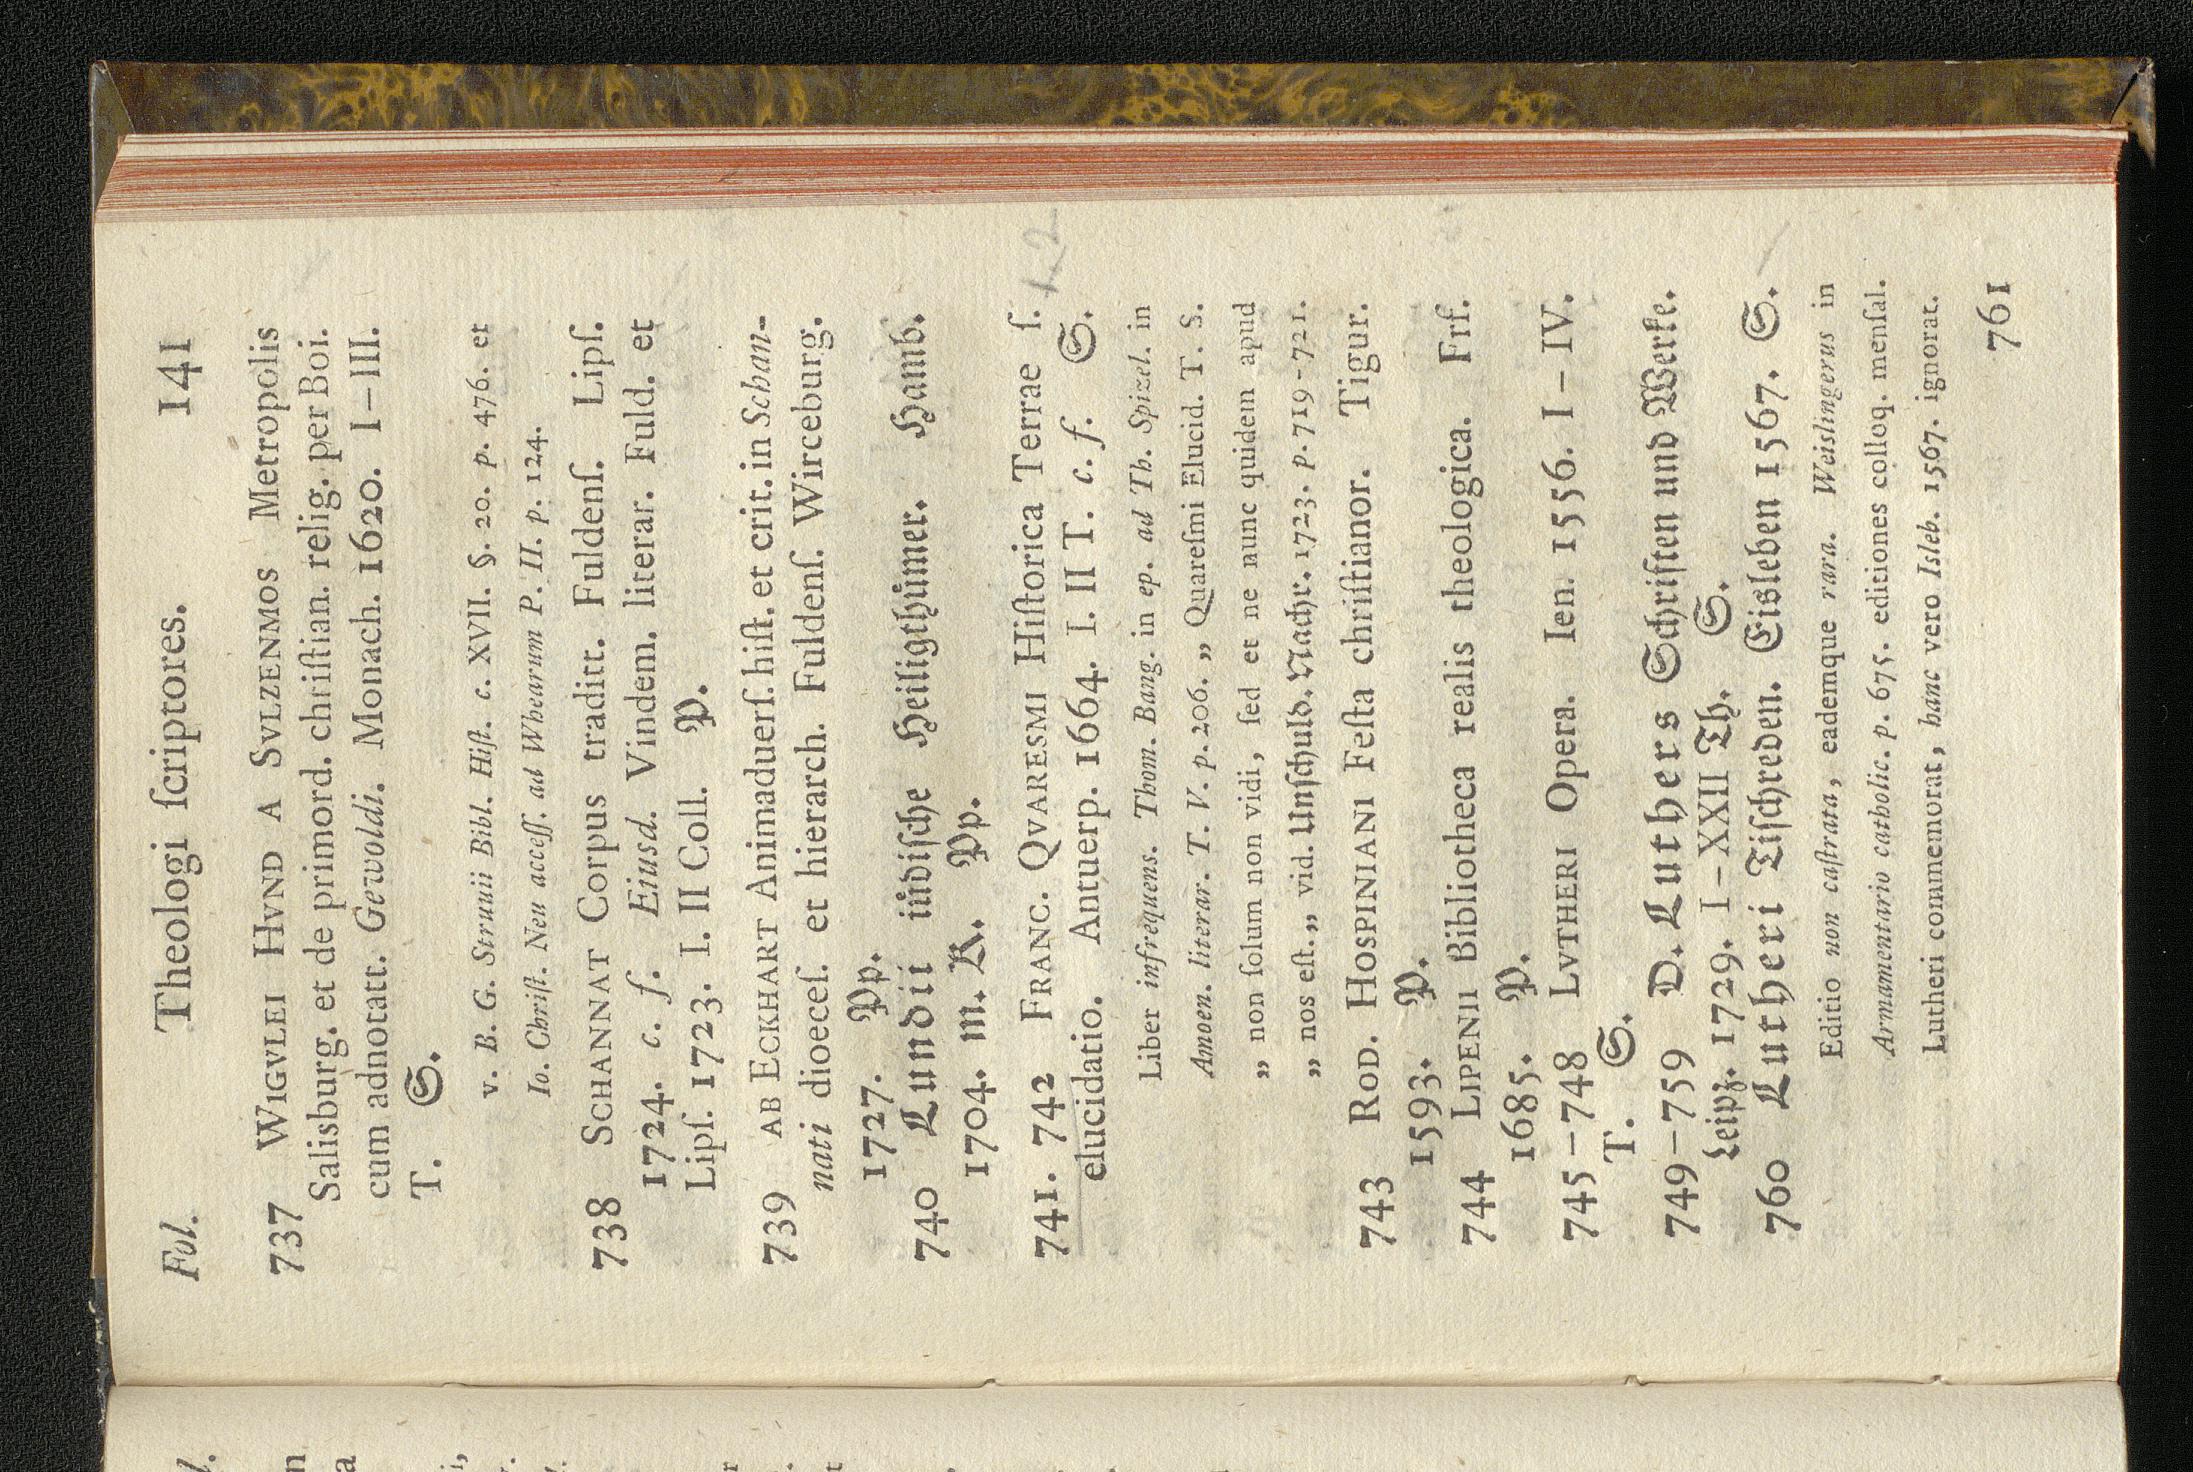 Fol. Theologi ſcriptores. 141
737 WIGVLEI HVND A SVLZENMOS Metropolis
Salisburg. et de primord. chriſtian. relig. per Boi.
cum adnotatt. Gewoldi. Monach. 1620. I–III.
T. S.
v. B. G. Struuii Bibl. Hiſt. c. XVII. §. 20. p. 476. et
Io. Chriſt. Neu acceſſ. ad Whearum P. II. p. 124.
738 SCHANNAT Corpus traditt. Fuldenſ. Lipſ.
1724. c. f. Eiusd. Vindem. literar. Fuld. et
Lipſ. 1723. I. II Coll. P.
739 AB ECKHART Animaduerſ. hiſt. et crit. in Schan-
nati dioeceſ. et hierarch. Fuldenſ. Wirceburg.
1727. Pp.
740 Lundii iüdiſche Heiligthümer. Hamb.
1704. m. K. Pp.
741. 742 FRANC. QVARESMI Hiſtorica Terrae ſ.
elucidatio. Antuerp. 1664. I. II T. c. f. S.
142
Liber infrequens. Thom. Bang. in ep. ad Th. Spizel. in
Amoen. literar. T. V. p. 206. „ Quareſmi Elucid. T. S.
„ non ſolum non vidi, ſed et ne nunc quidem apud
„ nos eſt. „ vid. Unſchuld. Nachr. 1723. p. 719-721.
743 ROD. HOSPINIANI Feſta chriſtianor. Tigur.
1593. P.
744 LIPENII Bibliotheca realis theologica. Frf.
1685. P.
745–748 LVTHERI Opera. Ien. 1556. I–IV.
T. S.
749–759 D. Luthers Schriften und Werke.
Leipz. 1729. I–XXII Th. S.
760 Lutheri Tiſchreden. Eisleben 1567. S.
Editio non caſtrata, eademque rara. Weislingerus in
Armamentario catholic. p. 675. editiones colloq. menſal.
Lutheri commemorat, hanc vero Isleb. 1567. ignorat.
761